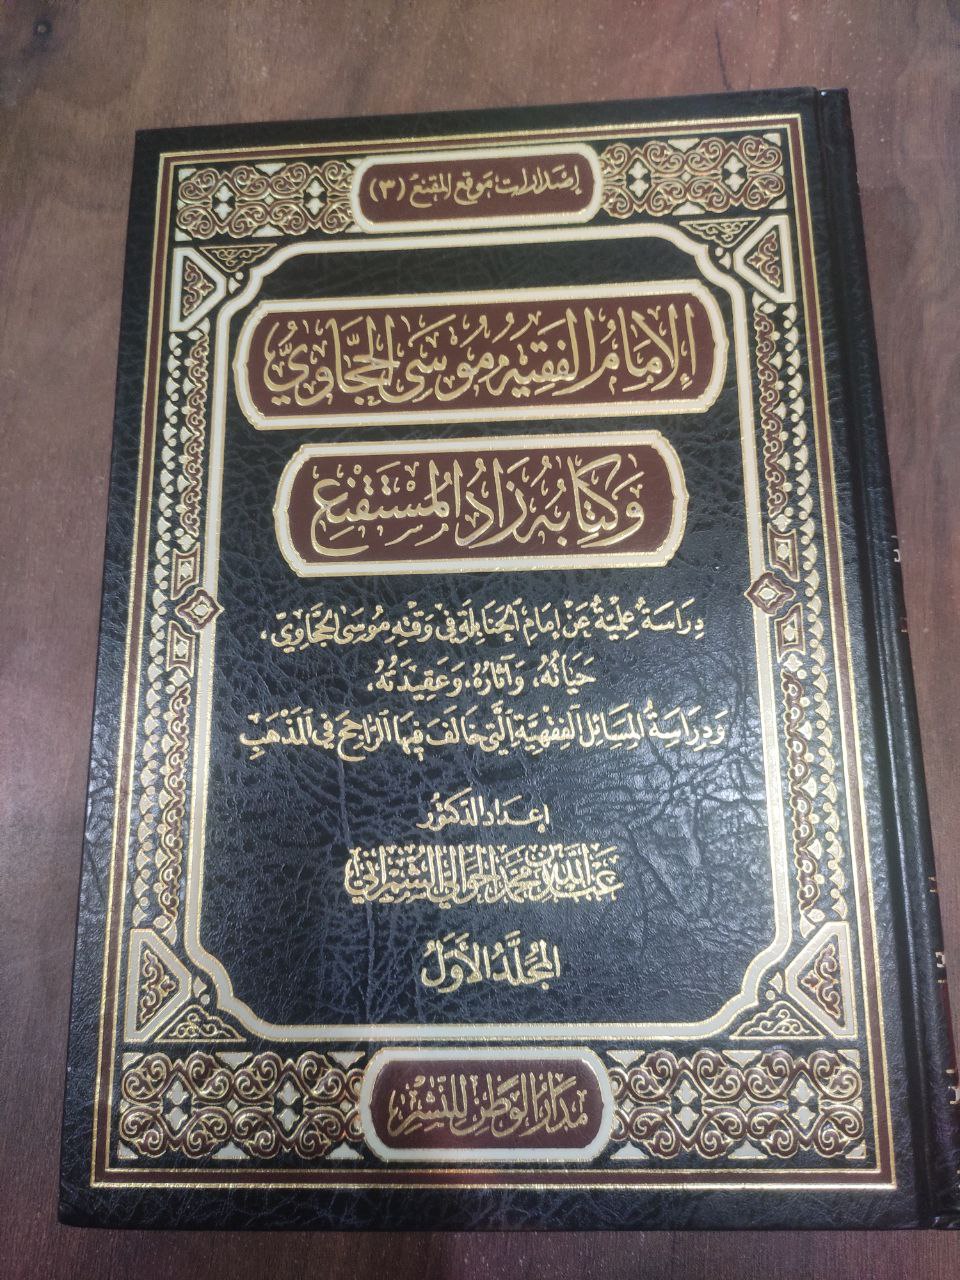 إصدارات موقع المقنع (٣)
الإِمَامُ الفَقِيهُ مُوسَى الحَجَّاوِيُّ
وَكِتَابُهُ زَادُ المُسْتَقْنِعِ
دِرَاسَةٌ عِلْمِيَّةٌ عَنْ إِمَامِ الحَنَابِلَةِ فِي وَقْتِهِ مُوسَى الحَجَّاوِيِّ،
حَيَاتُهُ، وَآثَارُهُ، وَعَقِيدَتُهُ،
وَدِرَاسَةُ المَسَائِلِ الفِقْهِيَّةِ الَّتِي خَالَفَ فِيهَا الرَّاجِحَ فِي المَذْهَبِ
إعداد الدكتور
عبد الله بن محمد الحوالي الشمراني
المُجَلَّدُ الأَوَّلُ
مدار الوطن للنشر